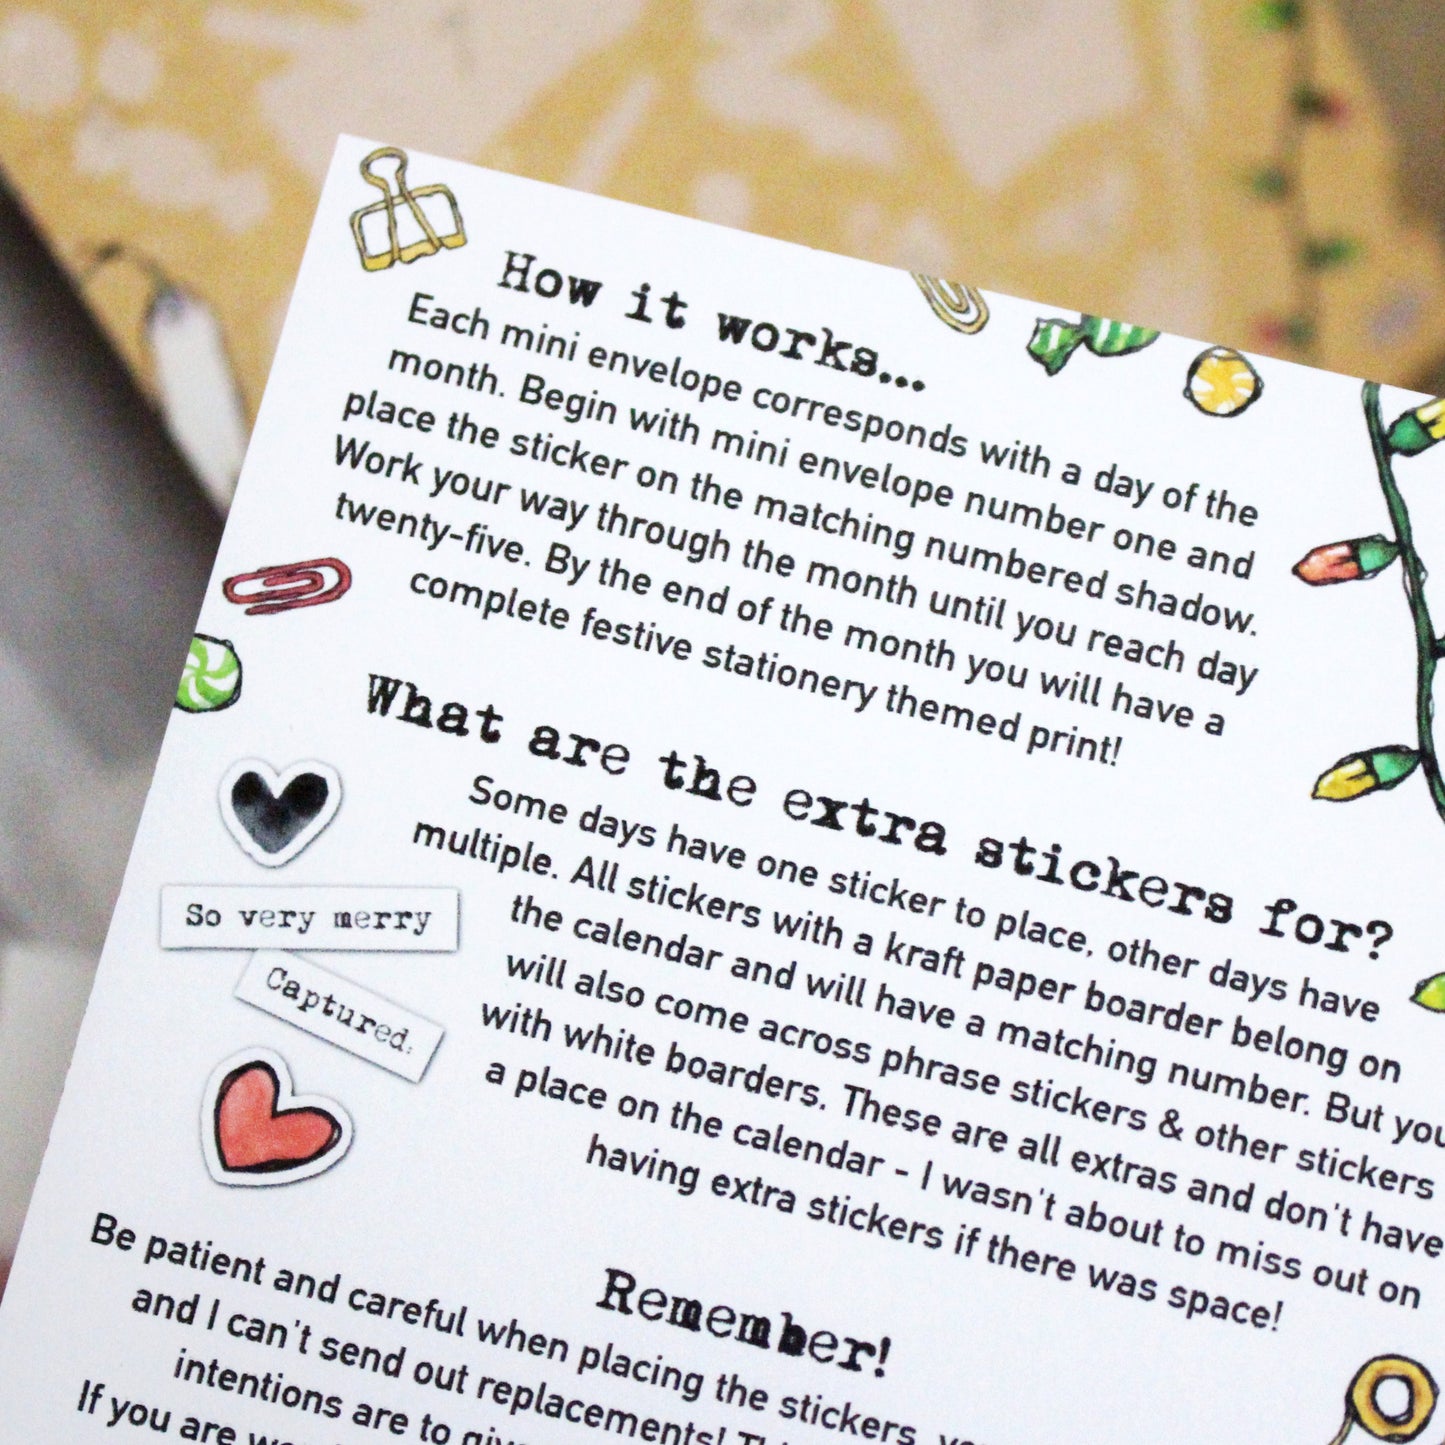 How it works...
Each mini envelope corresponds with a day of the
month. Begin with mini envelope number one and
place the sticker on the matching numbered shadow.
Work your way through the month until you reach day
twenty-five. By the end of the month you will have a
complete festive stationery themed print!
What are the extra stickers for?
Some days have one sticker to place, other days have
multiple. All stickers with a kraft paper boarder belong on
the calendar and will have a matching number. But you
will also come across phrase stickers & other stickers
with white boarders. These are all extras and don't have
a place on the calendar - I wasn't about to miss out on
having extra stickers if there was space!
So very merry
Captured.
Remember!
Be patient and careful when placing the stickers,
and I can't send out replacements!
intentions are to
If you are